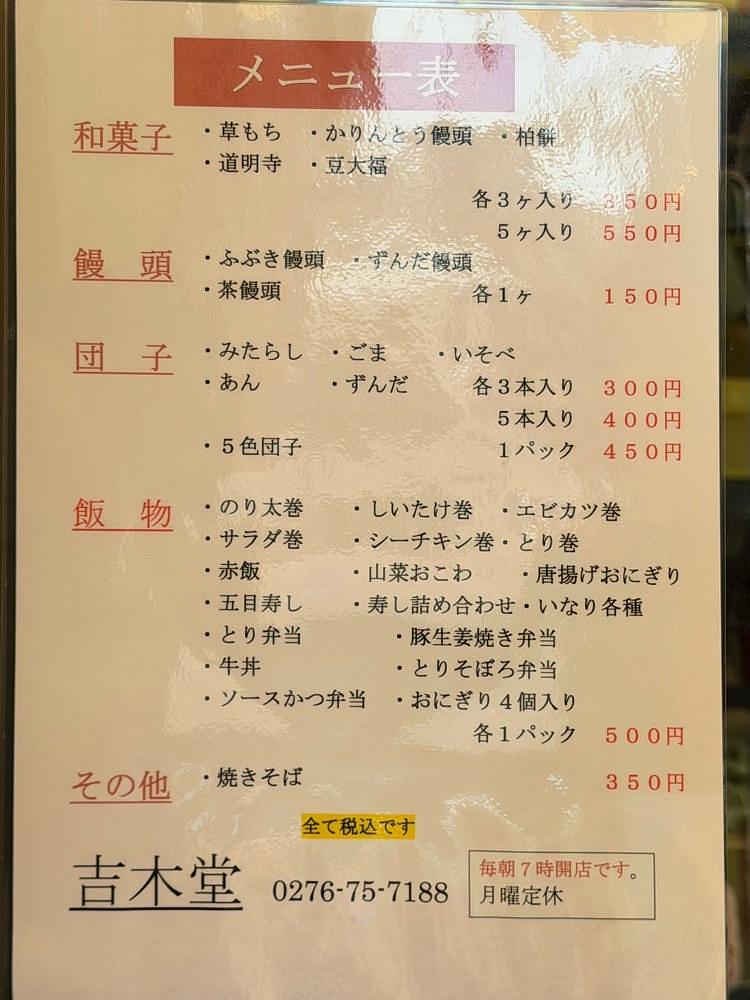 メニュー表
和菓子 ・草もち ・かりんとう饅頭 ・柏餅
・道明寺 ・豆大福
各３ヶ入り ３５０円
５ヶ入り ５５０円
饅 頭 ・ふぶき饅頭 ・ずんだ饅頭
・茶饅頭 各１ヶ １５０円
団 子 ・みたらし ・ごま ・いそべ
・あん ・ずんだ 各３本入り ３００円
５本入り ４００円
・５色団子 １パック ４５０円
飯 物 ・のり太巻 ・しいたけ巻 ・エビカツ巻
・サラダ巻 ・シーチキン巻・とり巻
・赤飯 ・山菜おこわ ・唐揚げおにぎり
・五目寿し ・寿し詰め合わせ・いなり各種
・とり弁当 ・豚生姜焼き弁当
・牛丼 ・とりそぼろ弁当
・ソースかつ弁当 ・おにぎり４個入り
各１パック ５００円
その他 ・焼きそば ３５０円
全て税込です
吉木堂 0276-75-7188 毎朝７時開店です。
月曜定休